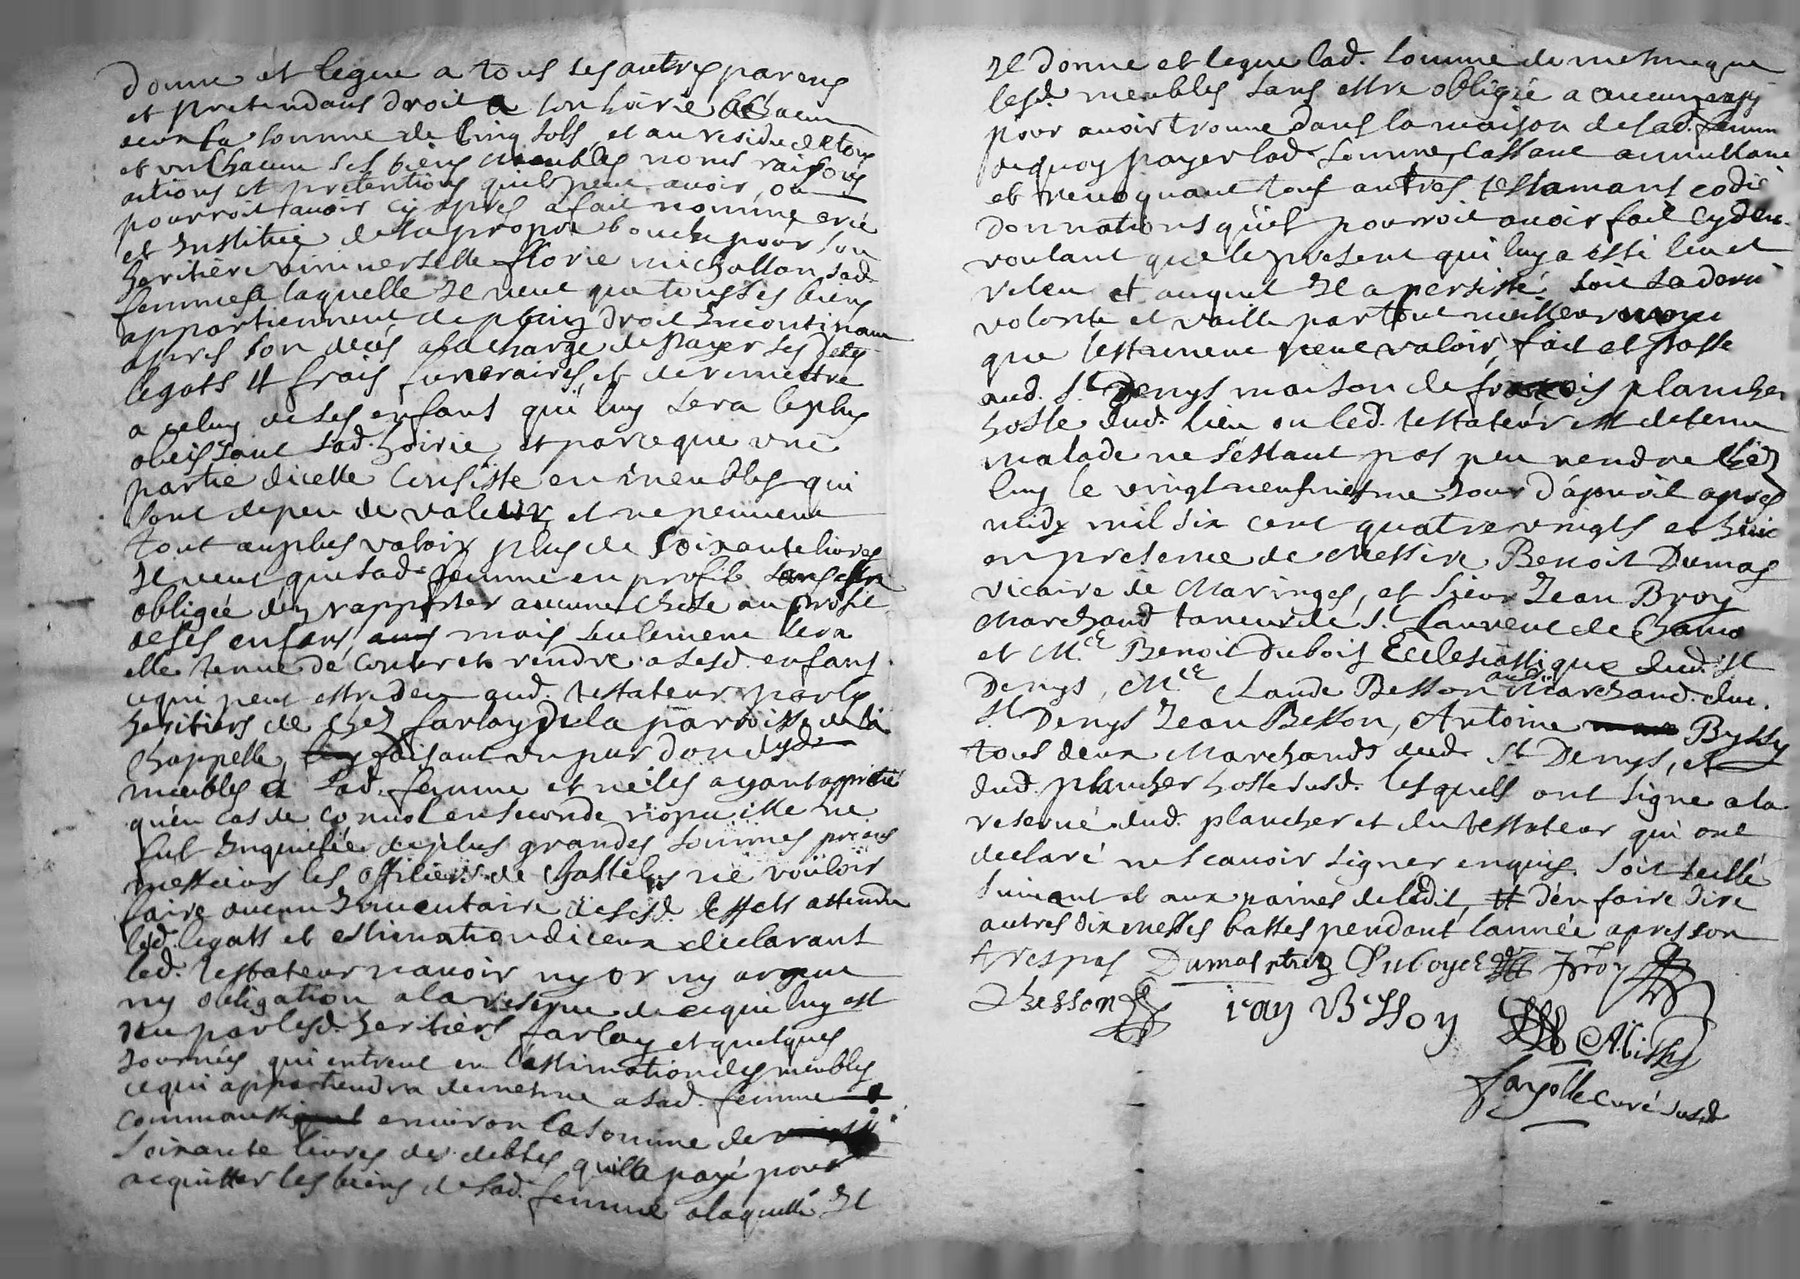 donne et legue a tous ses autres parens
et pretendans droit a son hoirie a chacun
deux la somme de cinq sols, et au residu de tous
et un chacun ses biens meubles noms raisons
actions et pretentions quil peut avoir, ou
pourroit avoir cy apres a fait nommé créé
et institué de sa propre bouche pour son
heritiere universelle florie michallon sad.
femme a laquelle Il veut que tous ses biens
appartiennent de plain droit incontinant
apres son deces a la charge de payer ses
legats # frais funeraires, et de remettre
a celuy de ses enfans qui luy sera le plus
obeissant sad. hoirie, et parce que une
partie dicelle consiste en meubles qui
sont de peu de valeur et ne peuvent
tout au plus valoir plus de soixante livres
Il veut que sad. femme en profite sans estre
obligée den rapporter aucune chose au profit
de ses enfans, mais seulement sera
elle tenue de conter et rendre a sesd. enfans
ce qui peut estre deu aud. testateur par les
heritiers de chez farlay de la parroisse de la
chappelle, faisant un pur don desd.
meubles a sad. femme et
qu'en cas de convol en seconde nopce elle ne
fut inquietée de plus grandes sommes priant
messieurs les officiers de Chastelus ne vouloir
faire aucun inventaire de sesd. effects attendu
lesd. legats et estimation diceux declarant
led. testateur n'avoir ny or ny argent
ny obligation a la reserve de ce qui luy est
deu par lesd. heritiers farlay et quelques
journées qui entrent en l'estimation des meubles
ce qui appartiendra de mesme a sad. femme
comm aussi environ la somme de
soixante livres des debtes quil a payé pour
acquitter les biens de sad. femme a laquelle Il
Il donne et legue lad. somme de mesme que
lesd. meubles sans estre obligée a aucun
pour avoir trouve dans la maison de sad. femme
de quoy payer lad. somme, cassant annullant
et revoquant tous autres testamans
donnations qu'il pourroit avoir fait cy dev.
voulant que le present qui luy a esté leu et
releu et auquel Il a persisté soit sa derni
volonte et vaille par tout meilleur moyen
que testament peut valoir, fait et passe
aud. St Denys maison de francois plancher
hoste dud. lieu ou led. testateur est detenu
malade ne s'estant pas peu rendre chez
luy le vingt neufviesme jour d'apvril apres
midy mil six cent quatre vingts et huit
en presence de Messire Benoit Dumas
vicaire de Maringes, et sieur Jean Broy
Marchand taneur de St Laurent de Cham
et Mre Benoit Dubois Ecclesiastique dud. St
Denys, Mre Claude Besson aussi Marchand dud.
St Denys Jean Besson, Antoine Byssy
tous deux Marchands dud. St Denys, et
dud. plancher hoste susd. lesquels ont signe a la
reserve dud. plancher et du testateur qui ont
declaré ne scavoir signer enquis. soit scellé
suivant et aux paines de ledit, # d'en faire dire
autres dix messes basses pendant lannée apres son
trespas Dumas ptre Duboys Broy
Chesson ian Besson ABissy
fayolle curé susd.